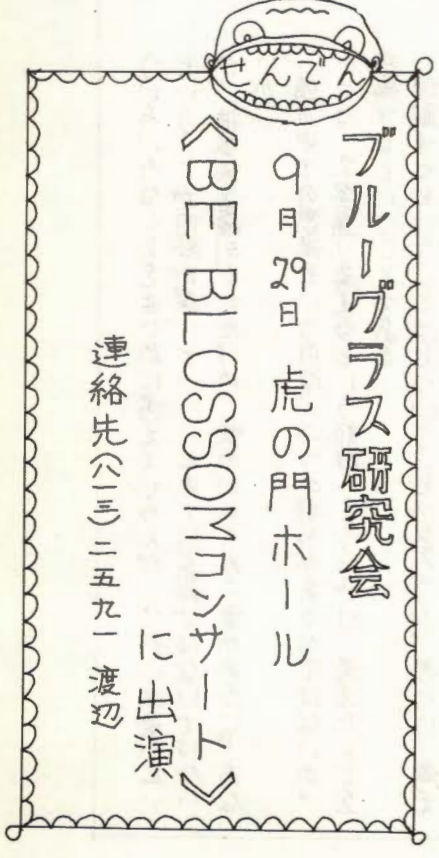 せんでん
ブルーグラス研究会
9月29日 虎の門ホール
《BE BLOSSOMコンサート》
に出演
連絡先(八一三)二五九一 渡辺